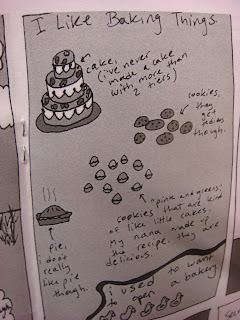 I Like Baking Things.
cake,
(i've never
made a cake
with more than
2 tiers)
cookies,
they
get
tedious
though.
pink and greens,
cookies that are kind
of like little cakes.
my nana made up
the recipe. they are
delicious.
pie,
i don't
really
like pie
though.
i used to want
to open a bakery.